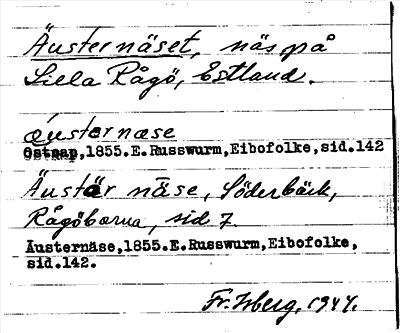 Äusternäset, näs på
Lilla Rågö, Estland.
áusternæse
1855.E.Russwurm,Eibofolke,sid.142
Äustär näse, Söderbäck,
Rågöborna, sid 7.
Äusternäse,1855.E.Russwurm,Eibofolke,
sid.142.
Fr. Wberg, 1944.